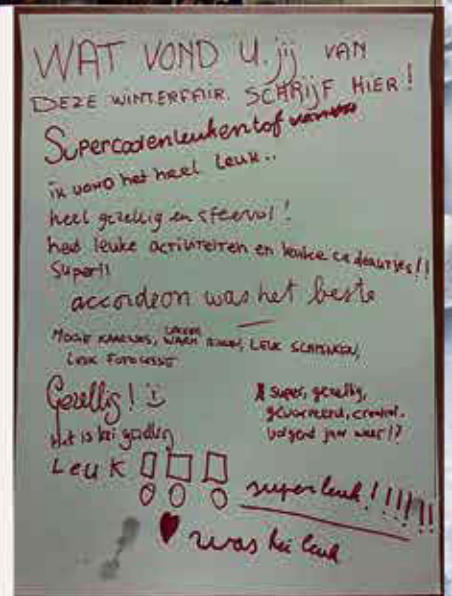 WAT VOND U. jij VAN
DEZE WINTERFAIR. SCHRIJF HIER!
Supercoolenleukentof
ik vond het heel leuk..
heel gezellig en sfeervol!
heel leuke activiteiten en leuke cadeautjes!!
Super!!
accordeon was het beste
MOOIE KAARSJES, LEKKER WARM, LEUK SCHMINKEN,
LEUK FOTOSESSIE
Gezellig!
super, gezellig,
gevarieerd, creatief.
volgend jaar weer!?
Het is kei gezellig
LEUK
super leuk!!!!!!!
was kei leuk